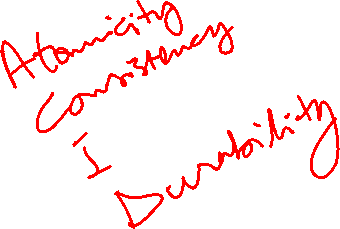 Atomicity
Consistency
I
Durability